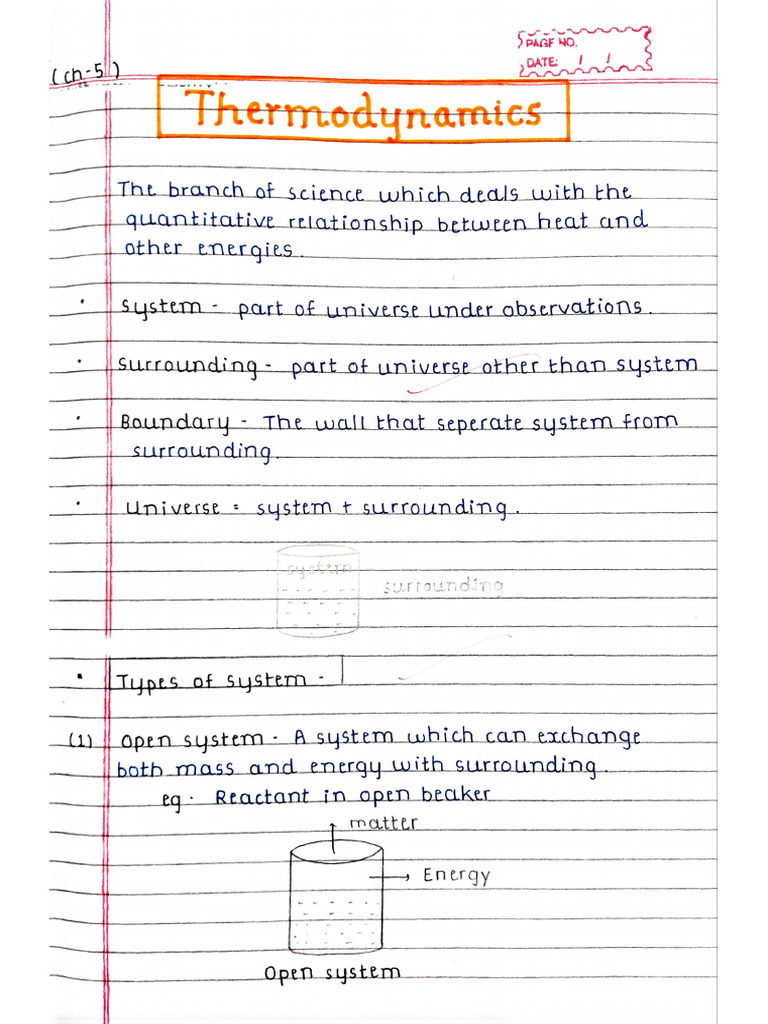 PAGE NO.
DATE: / /
(ch-5)
Thermodynamics
The branch of science which deals with the
quantitative relationship between heat and
other energies.
• System - part of universe under observations.
• Surrounding - part of universe other than system
• Boundary - The wall that seperate system from
surrounding.
• Universe = system + surrounding.
system
surrounding
• Types of system -
(1) Open system - A system which can exchange
both mass and energy with surrounding.
eg. Reactant in open beaker
matter
Energy
Open system